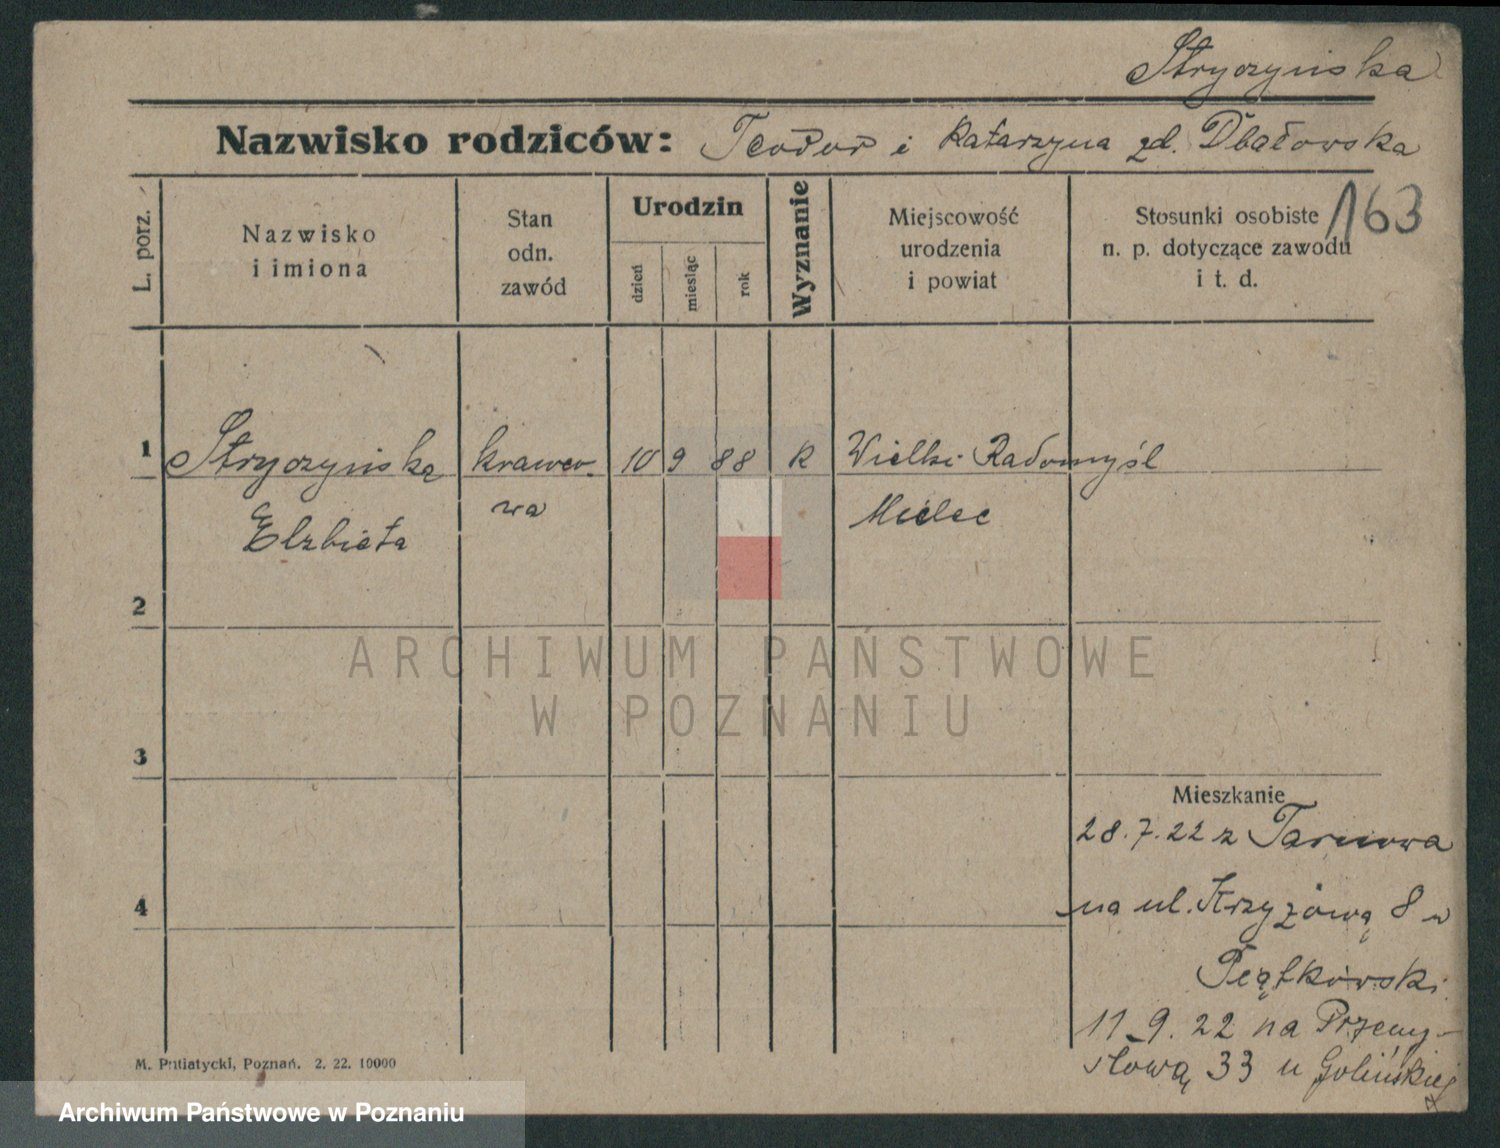 Stryczyńska
Nazwisko rodziców: Teodor i Katarzyna zd. Dbałowska
163
L. porz.
Nazwisko
i imiona
Stan
odn.
zawód
Urodzin
dzień
miesiąc
rok
Wyznanie
Miejscowość
urodzenia
i powiat
Stosunki osobiste
n. p. dotyczące zawodu
i t. d.
1 Stryczyńska krawco- 10 9 88 R Wielki Radomyśl
Elżbieta wa Mielec
2
ARCHIWUM PAŃSTWOWE
W POZNANIU
3
Mieszkanie
28.7.22 z Tarnowa
4
na ul. Krzyżową 8 u
11.9.22 na Przemy-
słową 33 u Golińskiej
M. Putiatycki, Poznań. 2. 22. 10000
Archiwum Państwowe w Poznaniu